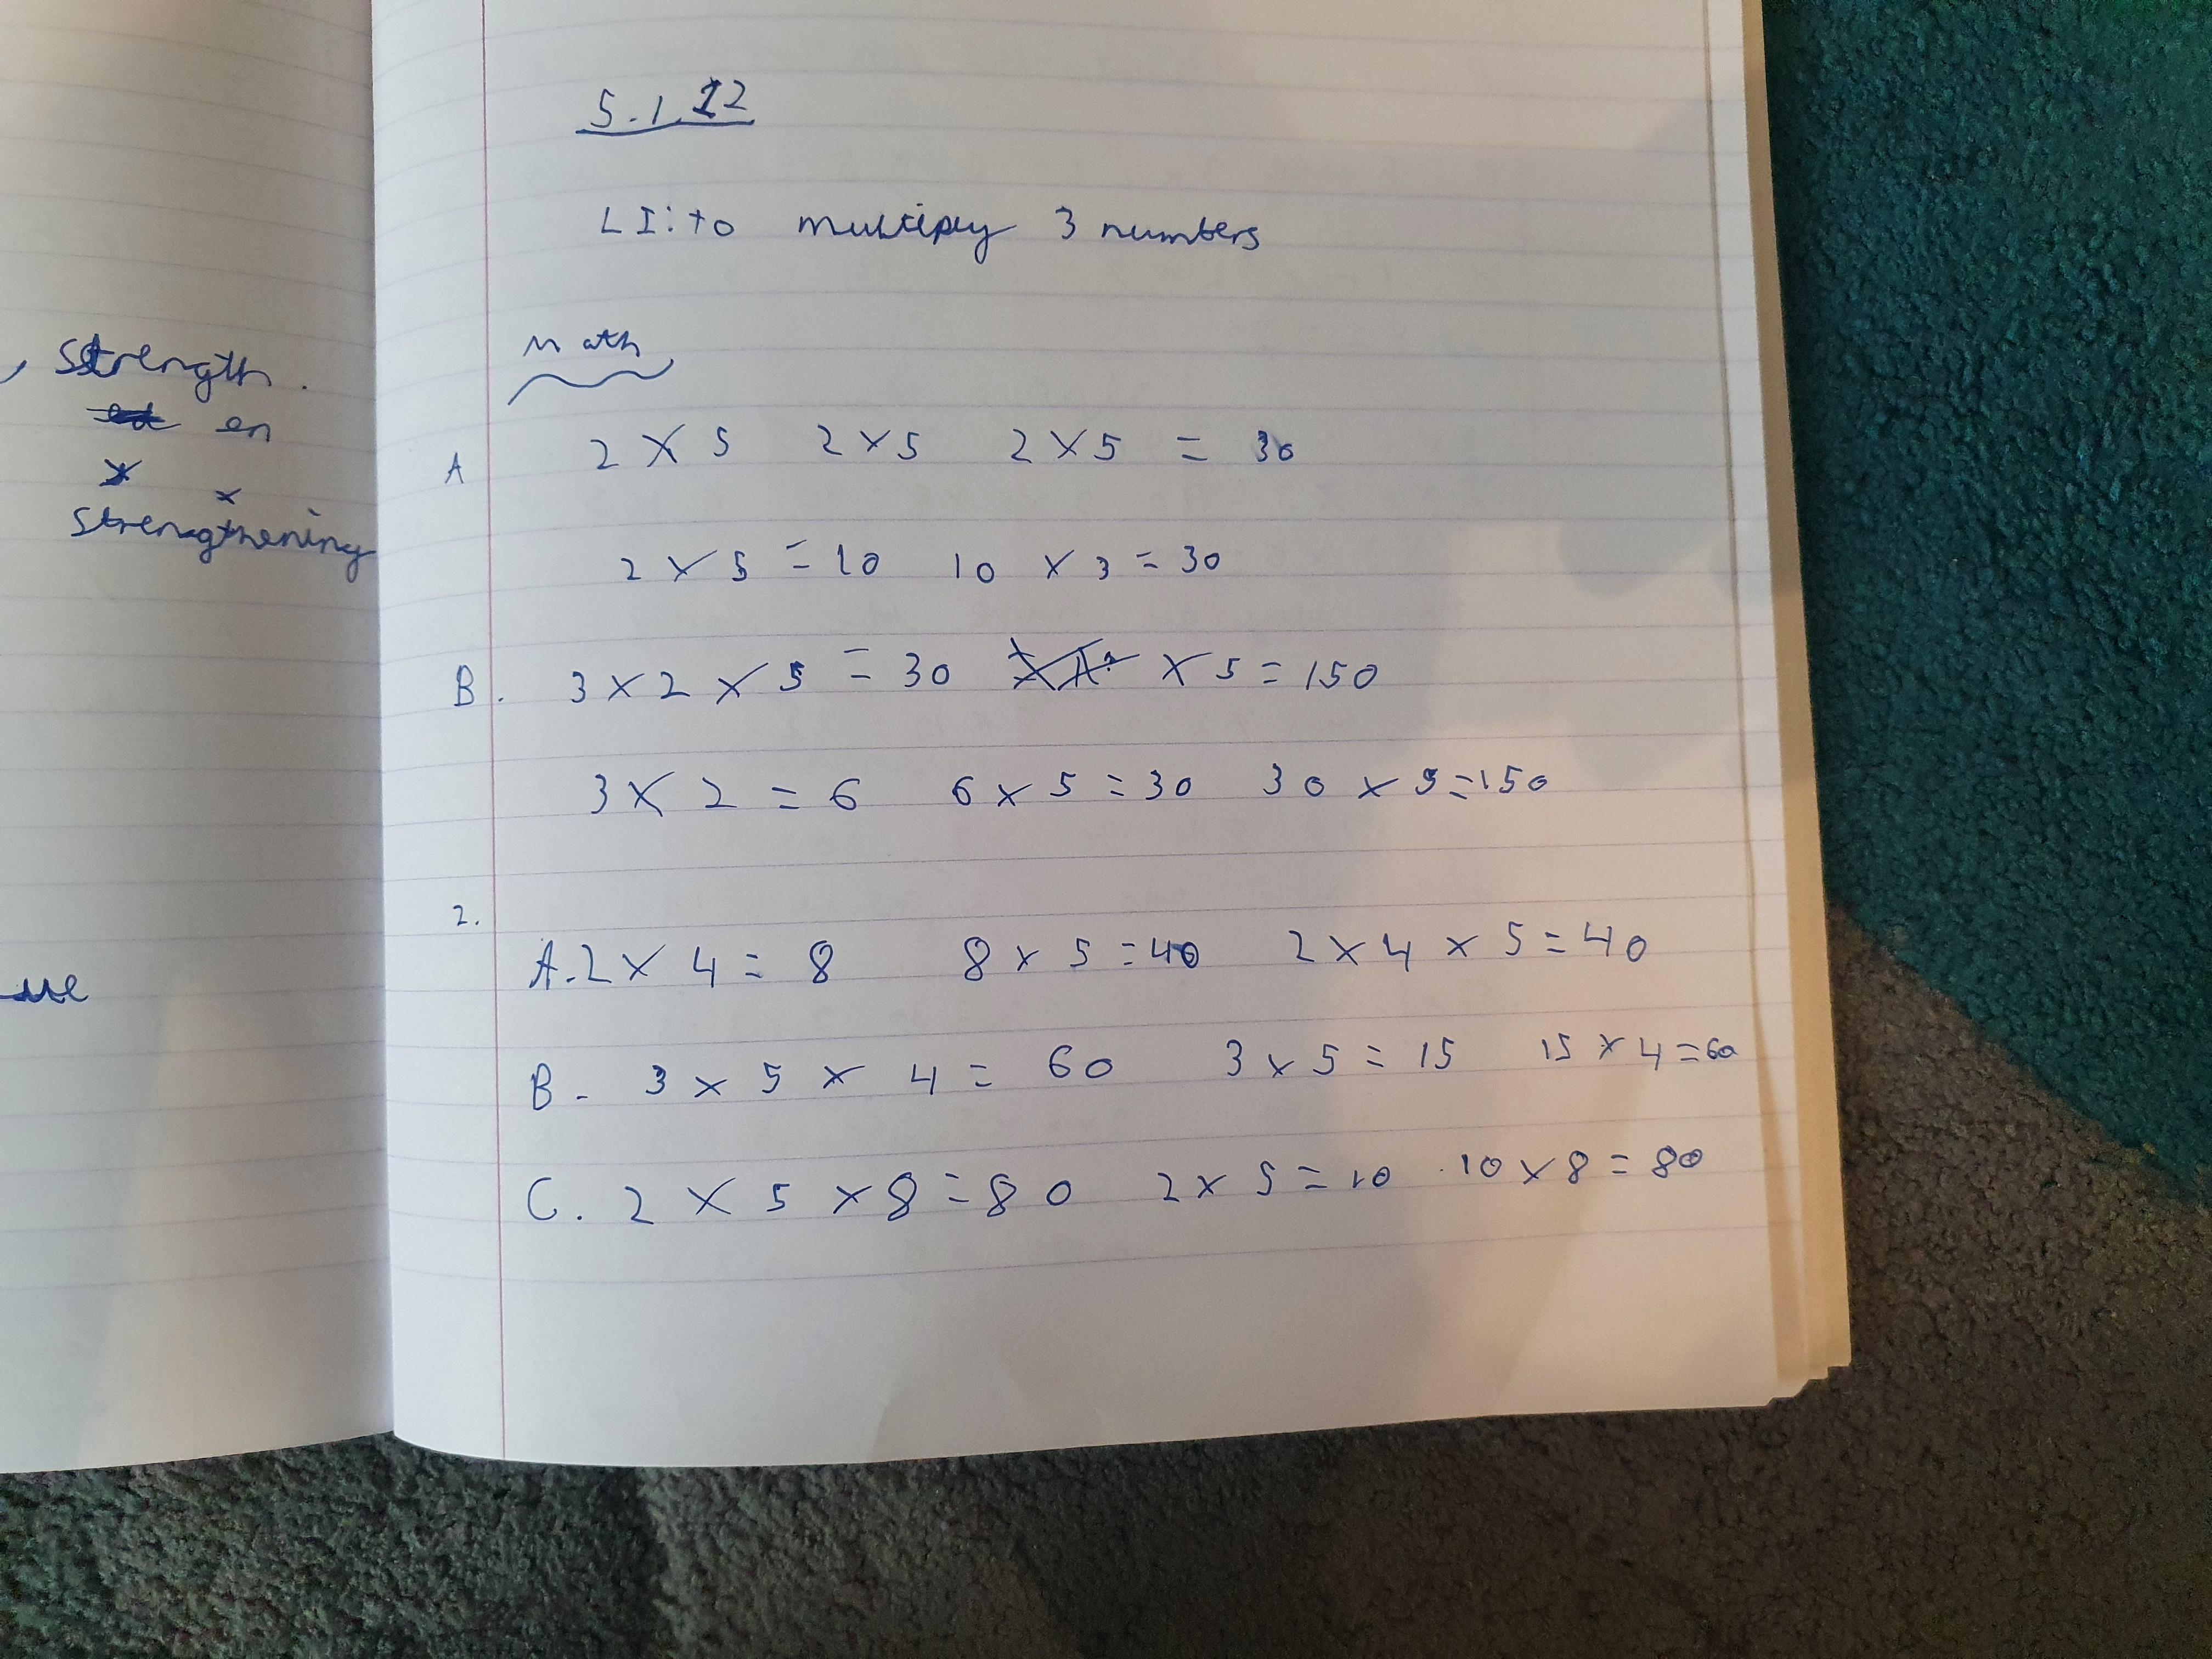 , Strength.
en
x x
Strenagthening
ue
5.1.22
LI: to multiply 3 numbers
Math
A 2 x 5 2 x 5 2 x 5 = 30
2 x 5 = 10 10 x 3 = 30
B. 3 x 2 x 5 = 30 x 5 = 150
3 x 2 = 6 6 x 5 = 30 30 x 5 = 150
2.
A. 2 x 4 = 8 8 x 5 = 40 2 x 4 x 5 = 40
B - 3 x 5 x 4 = 60 3 x 5 = 15 15 x 4 = 60
C. 2 x 5 x 8 = 80 2 x 5 = 10 10 x 8 = 80